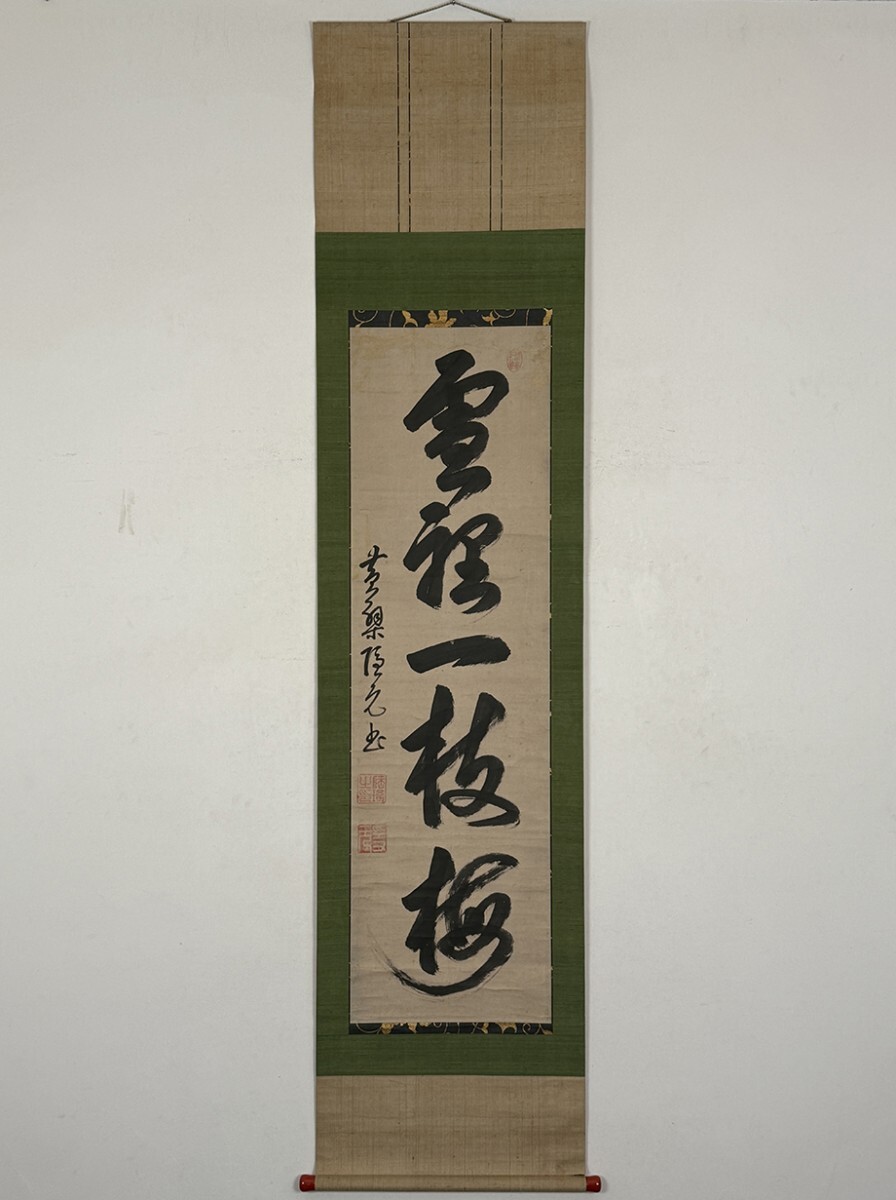 雪裡一枝梅
黄檗隠元書